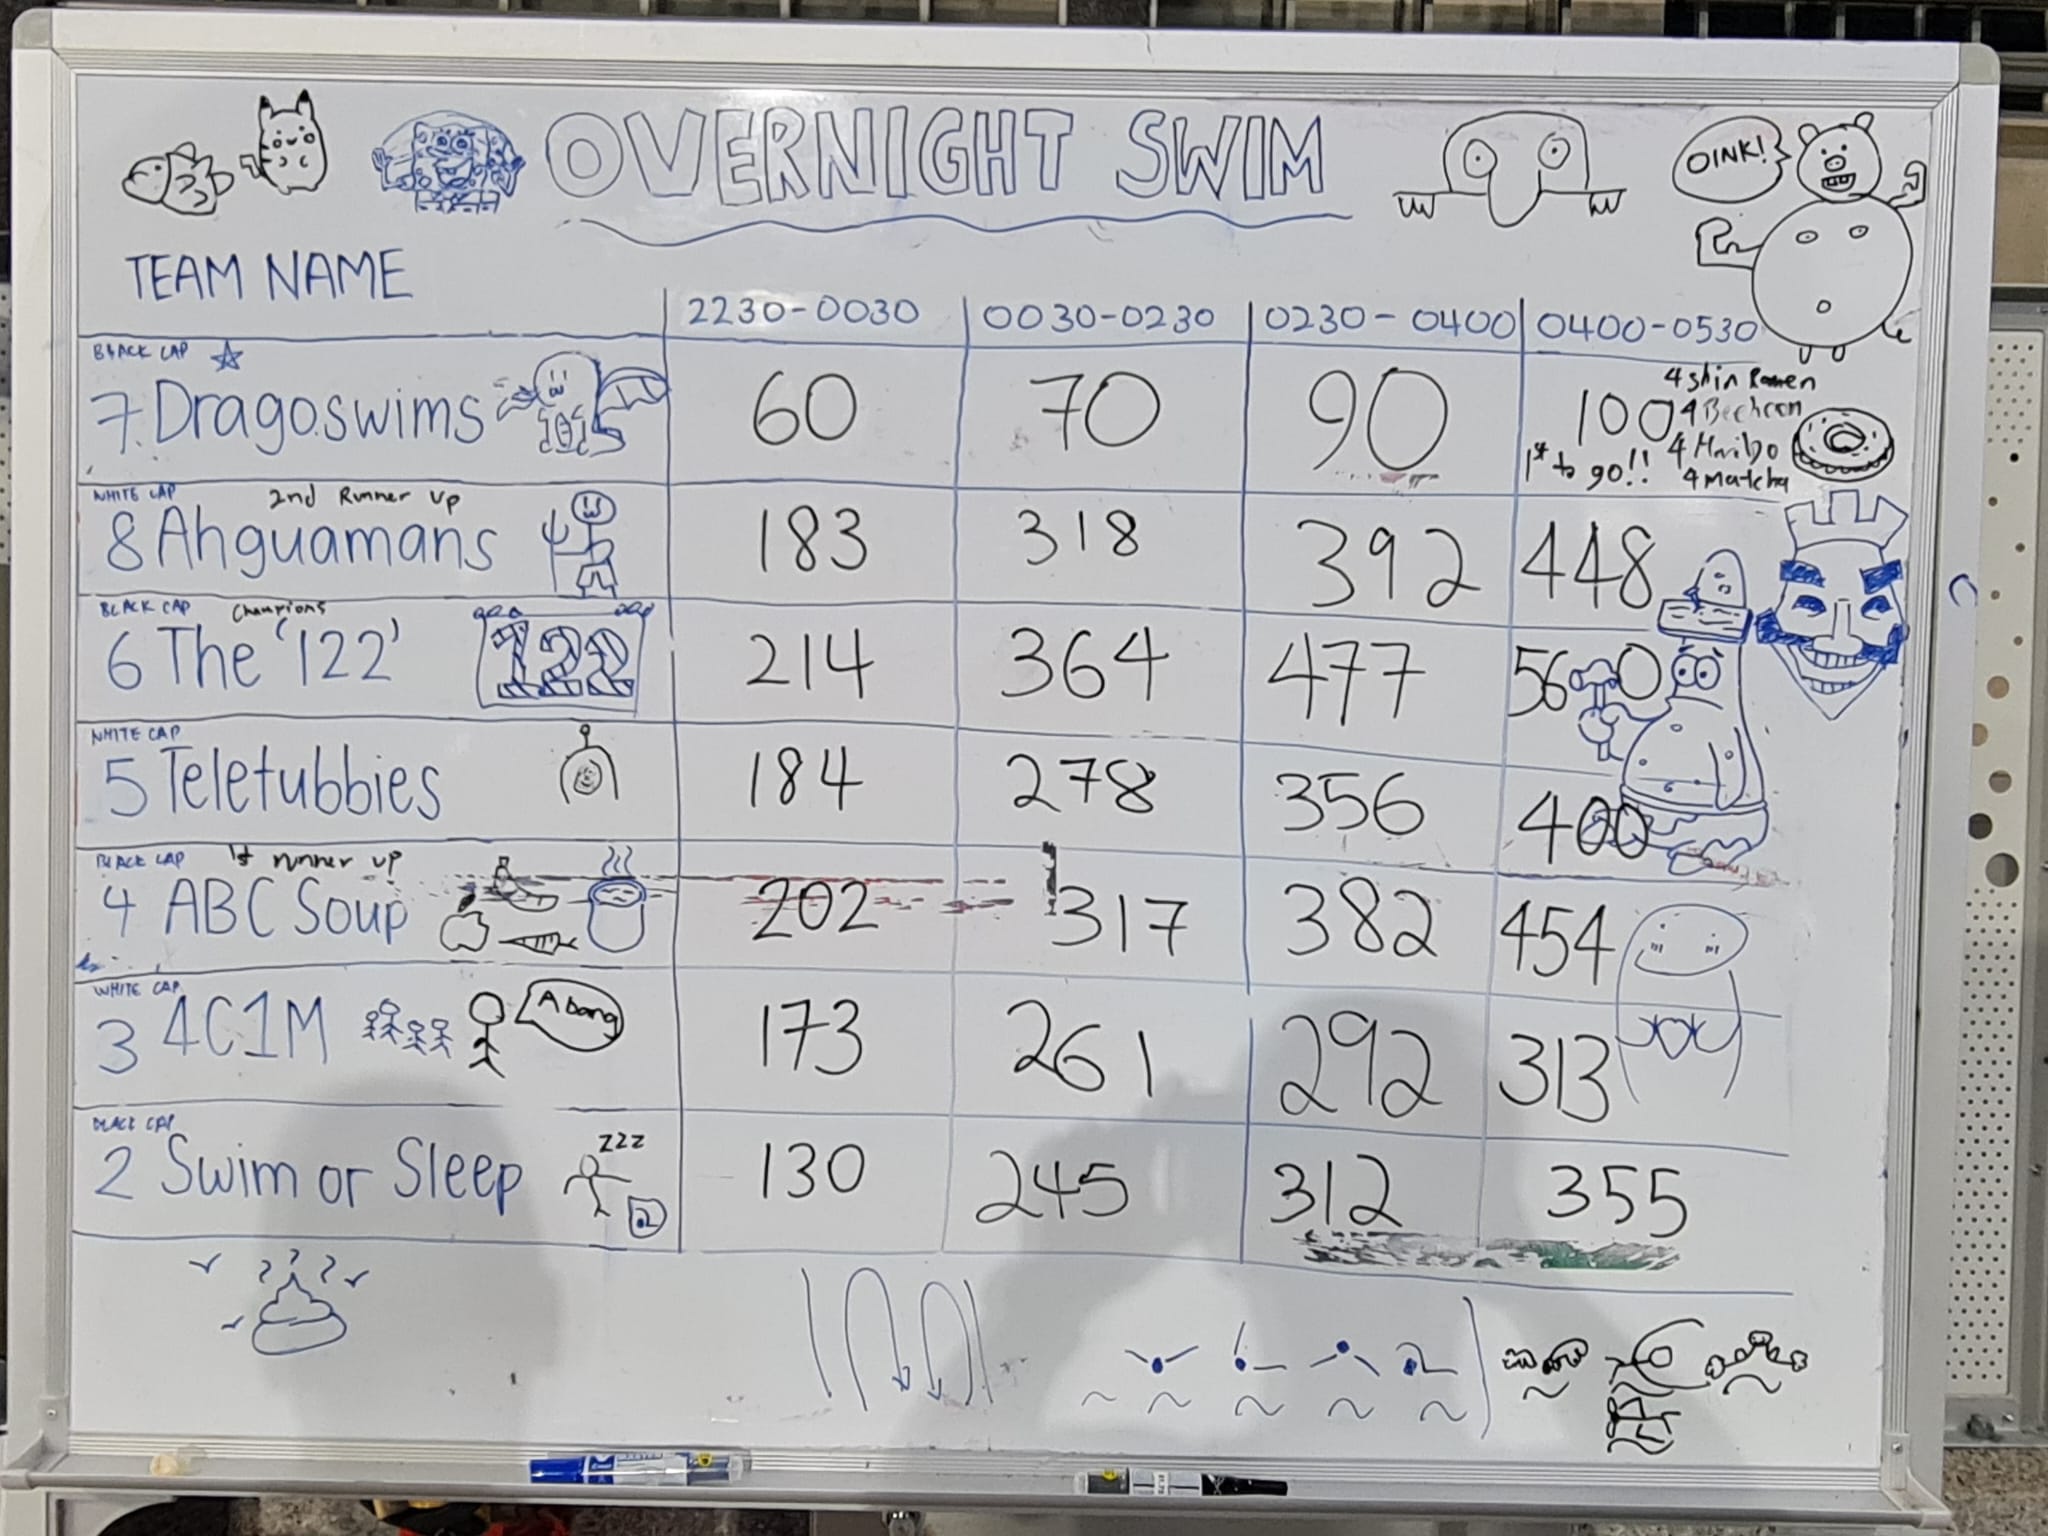 OVERNIGHT SWIM
OINK!
TEAM NAME
2230-0030 0030-0230 0230-0400 0400-0530
BLACK CAP
7. Dragoswims 60 70 90 100
4 Shin Ramen
4 Haribo
4 Matcha
1st to go!!
WHITE CAP 2nd Runner Up
8 Ahguamans 183 318 392 448
BLACK CAP Champions
6 The '122' 122 214 364 477 560
WHITE CAP
5 Teletubbies 184 278 356 400
BLACK CAP 1st runner up
4 ABC Soup 202 317 382 454
WHITE CAP
3 4C1M Abang 173 261 292 313
BLACK CAP
zzz
2 Swim or Sleep 130 245 312 355